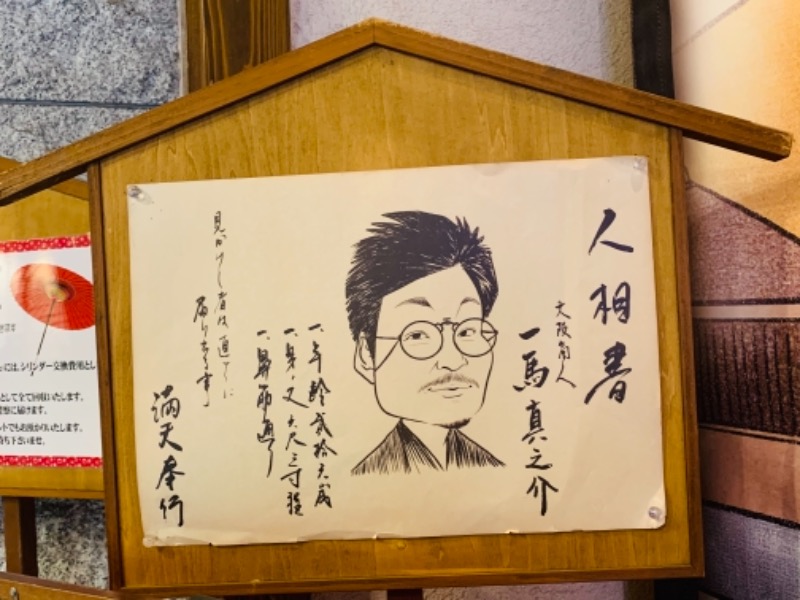 人相書
大阪商人
一馬真之介
一、年齢弐拾六歳
一、身ノ丈六尺三寸程
一、鼻筋通り
見かけし者は直ちに
届け出る事
満天奉行
には、シリンダー交換費用とし
として全て回収いたします。
に届けます。
ントでもお預かりいたします。
ち下さいませ。